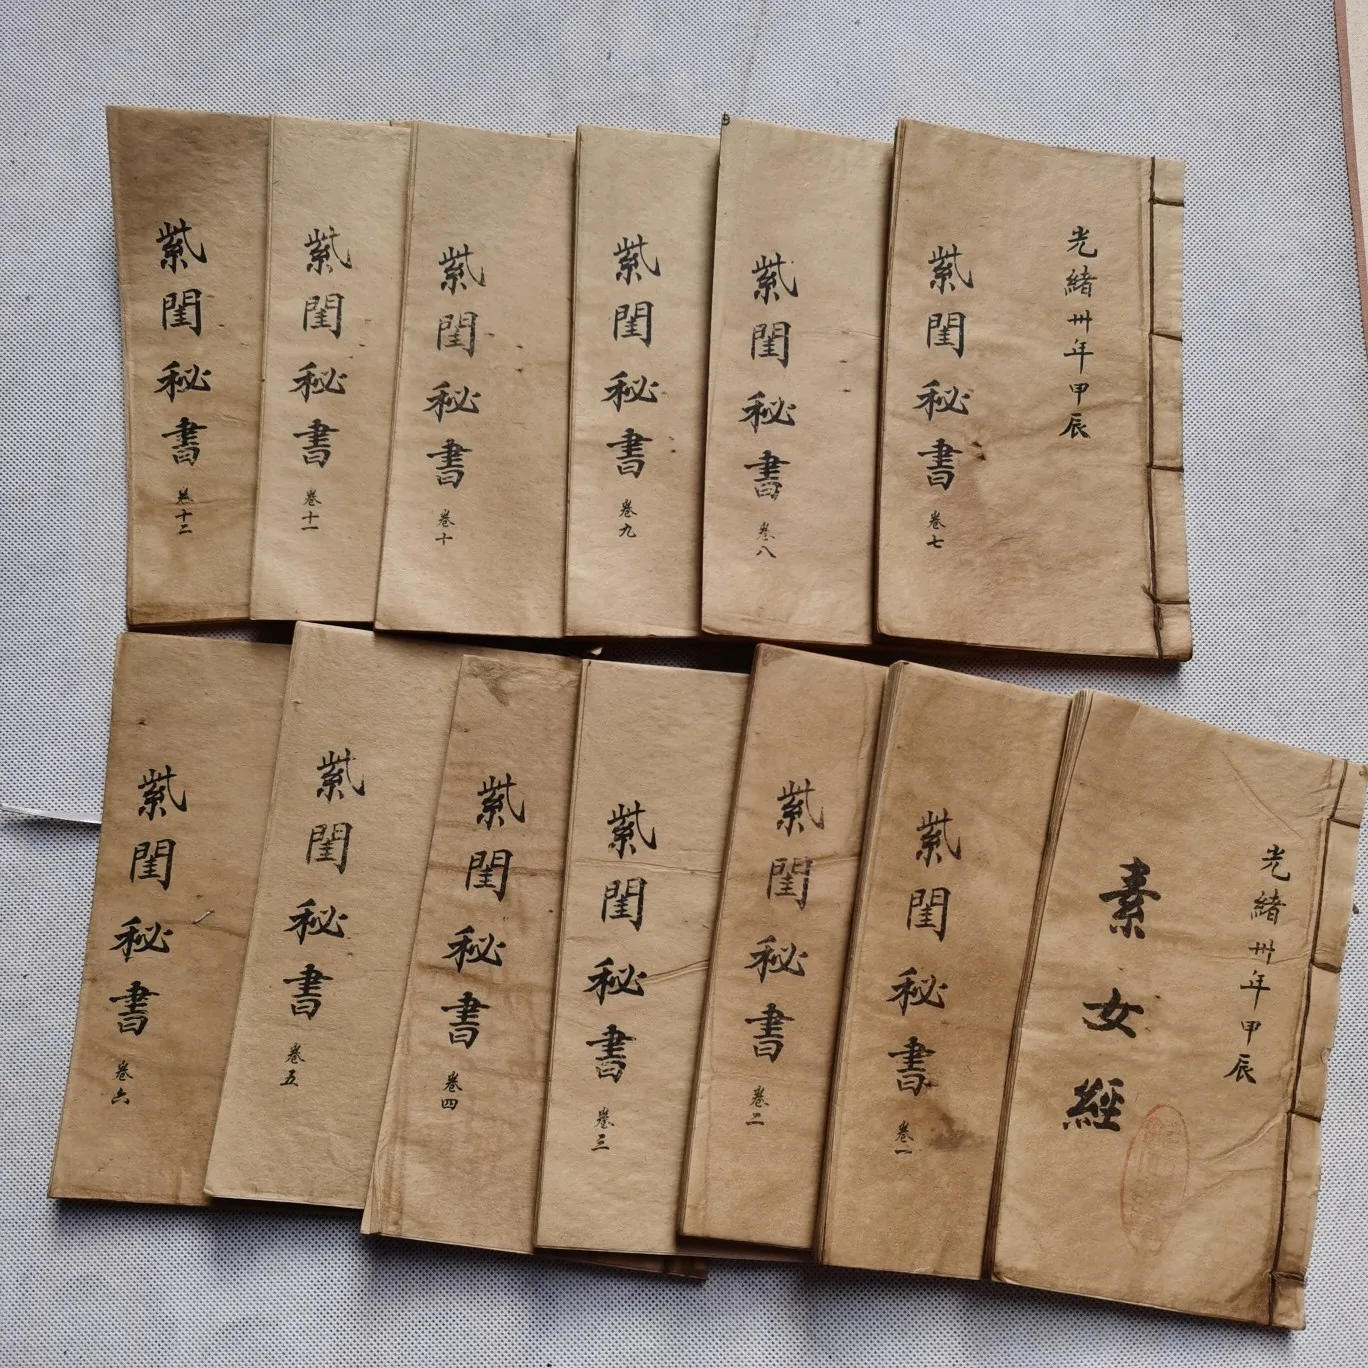 光緒卅年甲辰
紫閨秘書 卷七
紫閨秘書 卷八
紫閨秘書 卷九
紫閨秘書 卷十
紫閨秘書 卷十一
紫閨秘書 卷十二
光緒卅年甲辰
素女經
紫閨秘書 卷一
紫閨秘書 卷二
紫閨秘書 卷三
紫閨秘書 卷四
紫閨秘書 卷五
紫閨秘書 卷六